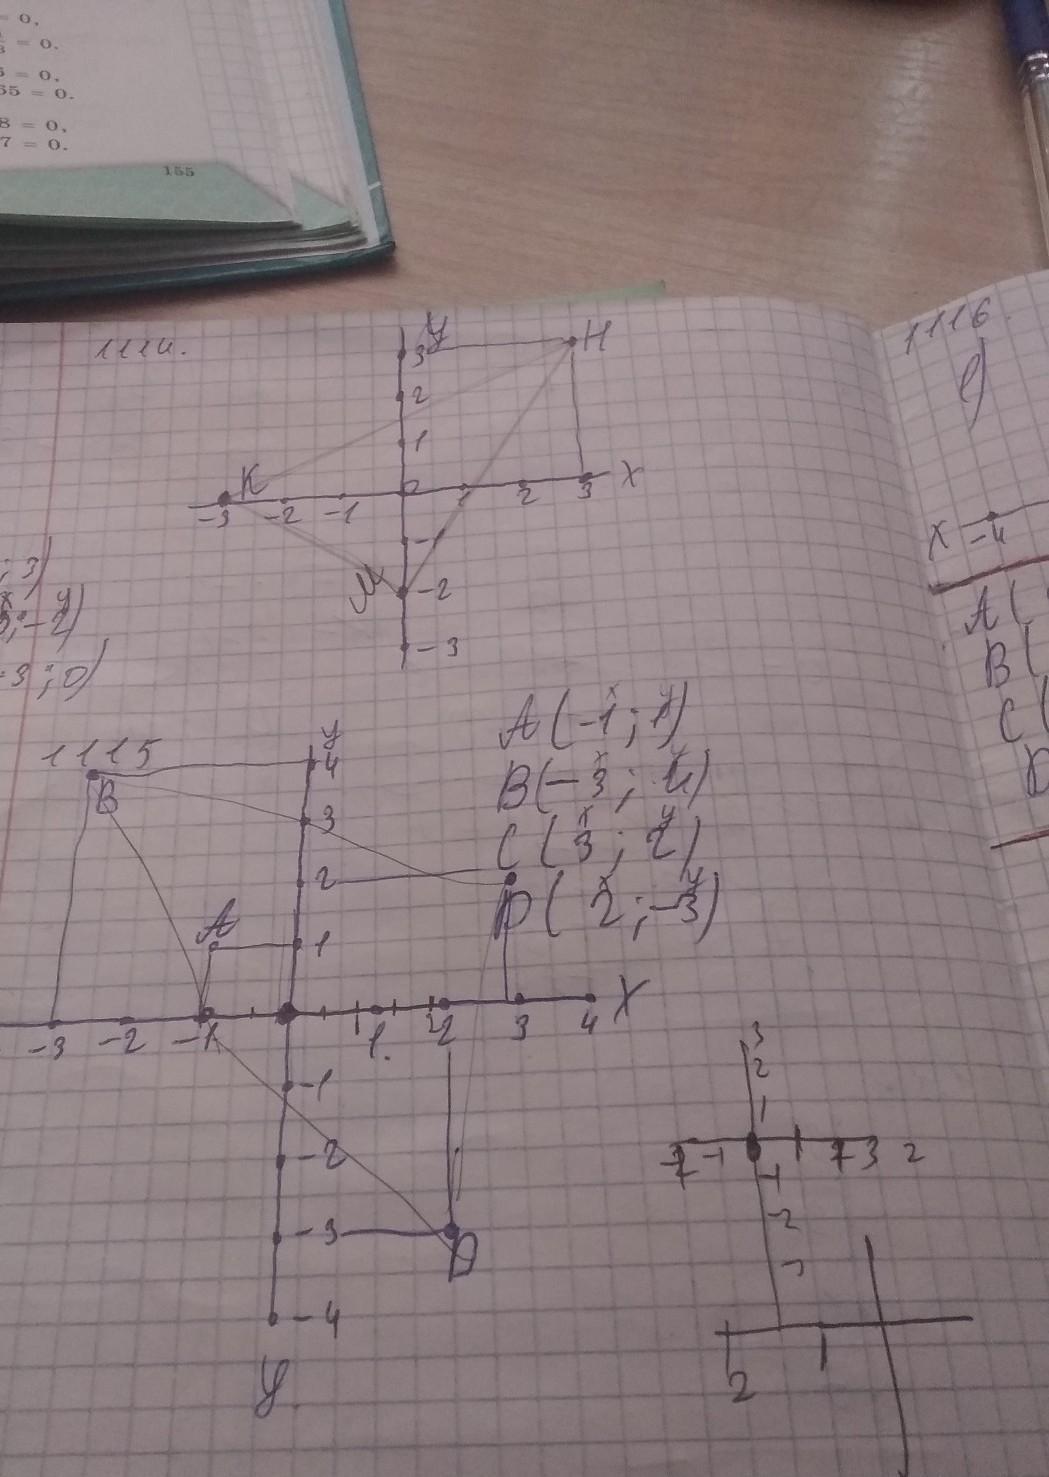 = 0,
= 0.
5 = 0,
65 = 0.
8 = 0,
7 = 0.
155
1114.
1116.
y
H
3
2
1
K
0
1
2
3
X
-3
-2
-1
-1
M
-2
-3
; 3)
x y
3; -2)
-3; 0)
X
-4
A(
B(
C(
D
1115
y
4
B
3
2
A
1
X
-3
-2
-1
1.
2
3
4
-1
-2
-3
D
-4
y
x y
A(-1; 1)
x y
B(-3; 4)
x y
C(3; 2)
x y
D(2; -3)
3
2
1
-1
3
2
-1
-2
2
1